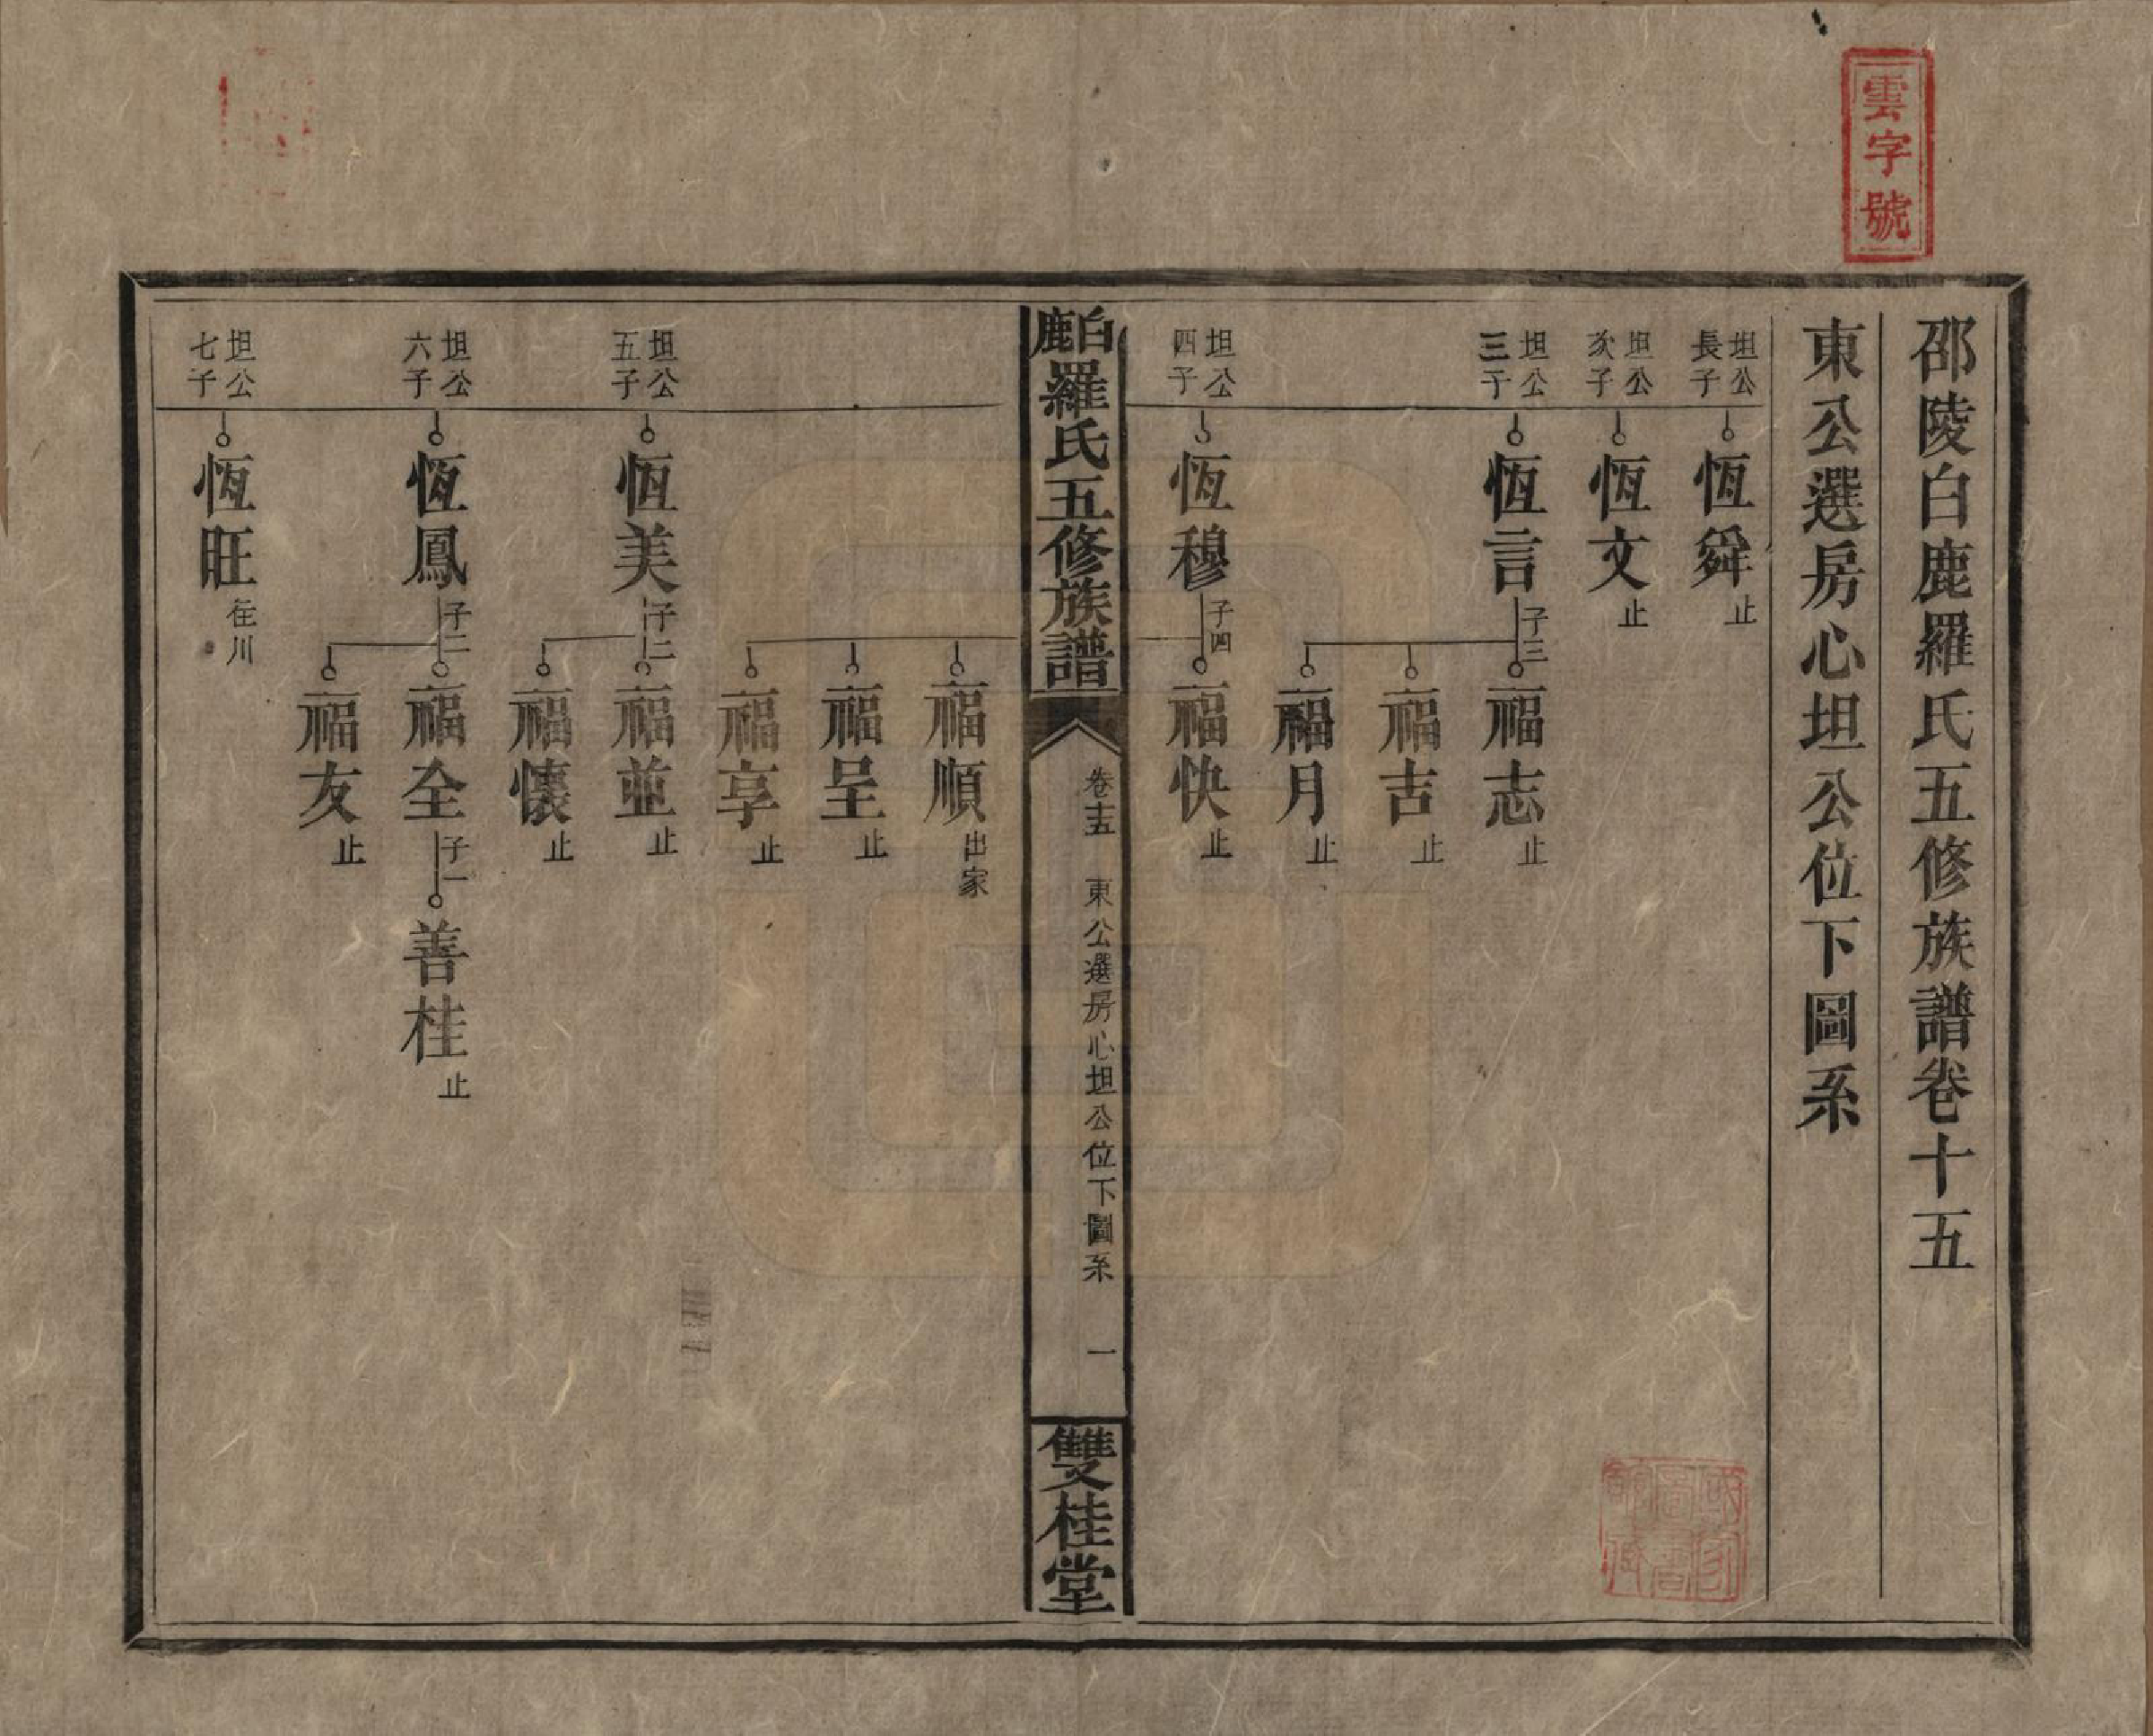 雲字號
邵陵白鹿羅氏五修族譜卷十五
東公選房心坦公位下圖系
坦公長子
恆舜止
坦公次子
恆文止
坦公三子
恆言子三
福志止
福吉止
福月止
坦公四子
恆穆子四
福快止
白鹿羅氏五修族譜
卷十五
東公選房心坦公位下圖系
一
雙桂堂
福順出家
福呈止
福享止
坦公五子
恆美子二
福並止
福懷止
坦公六子
恆鳳子二
福全子一
善桂止
福友止
坦公七子
恆旺在川